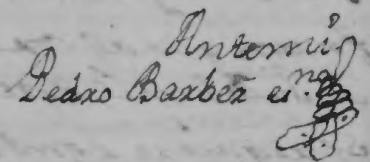 Antemi
Pedro Barber es.no